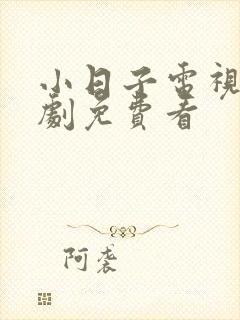 小日子電視
劇免費看
阿袭